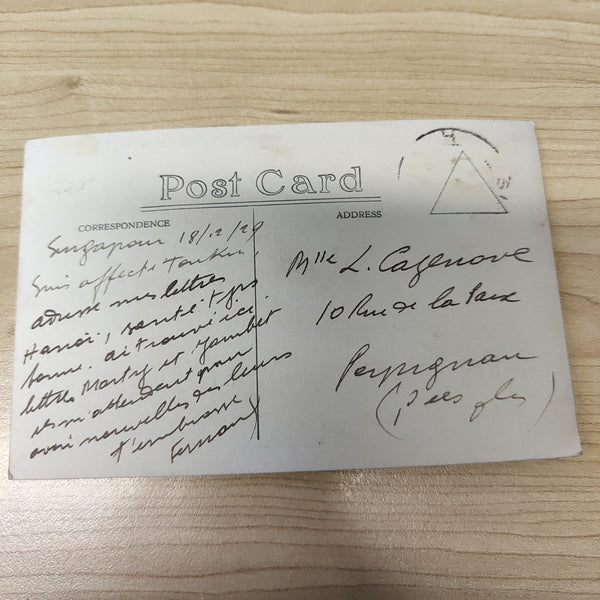 Post Card
CORRESPONDENCE
ADDRESS
Singapour 18/12/29
Suis affecté Tonkin,
adresse mes lettres
Hanoï, santé tjrs
bonne. ai trouvé ici
lettres Marty et Jambet
ils m'attendent pour
avoir nouvelles des leurs
t'embrasse
Fernand
Mlle L. Cazenove
10 Rue de la Paix
Perpignan
(Pées Oles)